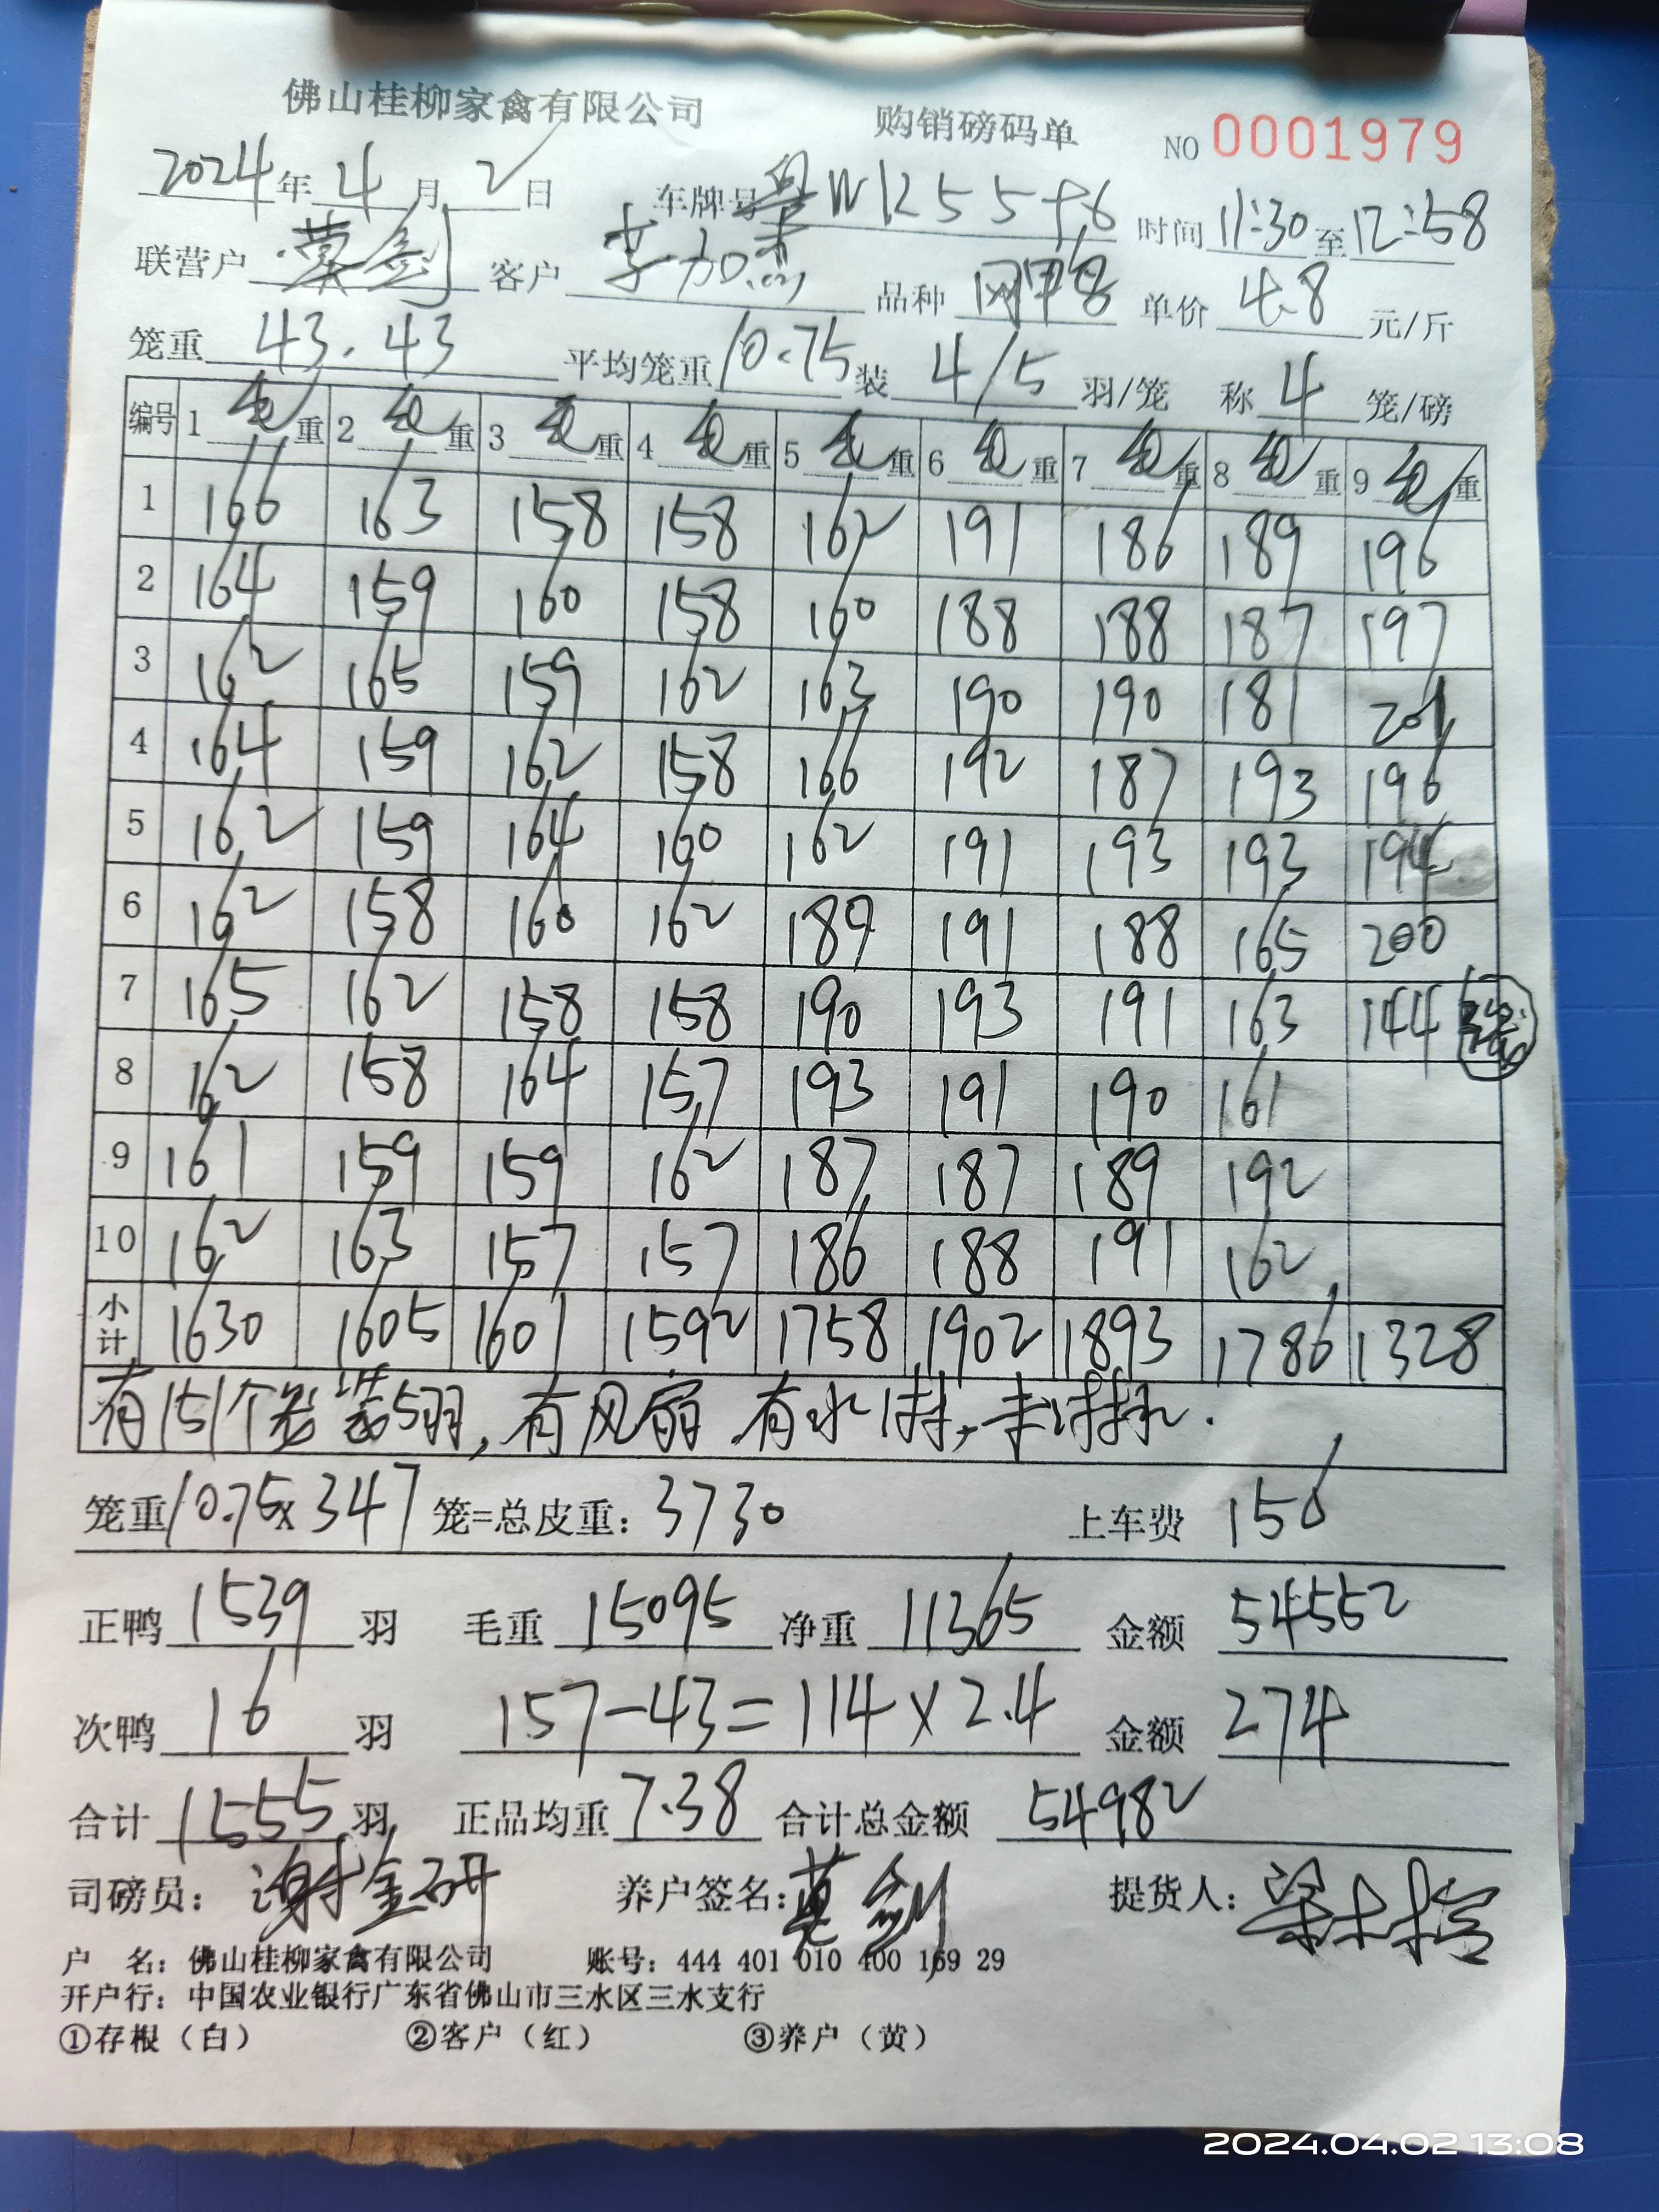 佛山桂柳家禽有限公司 购销磅码单 NO 0001979
2024年4月2日 车牌号 粤W12556 时间 11:30至12:58
联营户 莫剑 客户 李加 品种 单价 4.8 元/斤
笼重 43.43 平均笼重 10.75 装 4/5 羽/笼 称 4 笼/磅
编号 1 毛重 2 毛重 3 毛重 4 毛重 5 毛重 6 毛重 7 毛重 8 毛重 9 毛重
1 166 163 158 158 162 191 186 189 196
2 164 159 160 158 160 188 188 187 197
3 162 165 159 162 163 190 190 181 201
4 164 159 162 158 166 192 187 193 196
5 162 159 164 160 162 191 193 193 194
6 162 158 160 162 189 191 188 165 200
7 165 162 158 158 190 193 191 163 144
8 162 158 164 157 193 191 190 161
9 161 159 159 162 187 187 189 192
10 162 163 157 157 186 188 191 162
小计 1630 1605 1601 1592 1758 1902 1893 1786 1328
有151个笼装5羽,有风扇 有水淋,未淋水.
笼重 10.75x347 笼=总皮重: 3730 上车费 156
正鸭 1539 羽 毛重 15095 净重 11365 金额 54552
次鸭 16 羽 157-43=114x2.4 金额 274
合计 1555 羽 正品均重 7.38 合计总金额 54982
司磅员: 谢金研 养户签名: 莫剑 提货人: 梁
户 名: 佛山桂柳家禽有限公司 账号: 444 401 010 400 169 29
开户行: 中国农业银行广东省佛山市三水区三水支行
①存根(白) ②客户(红) ③养户(黄)
2024.04.02 13:08